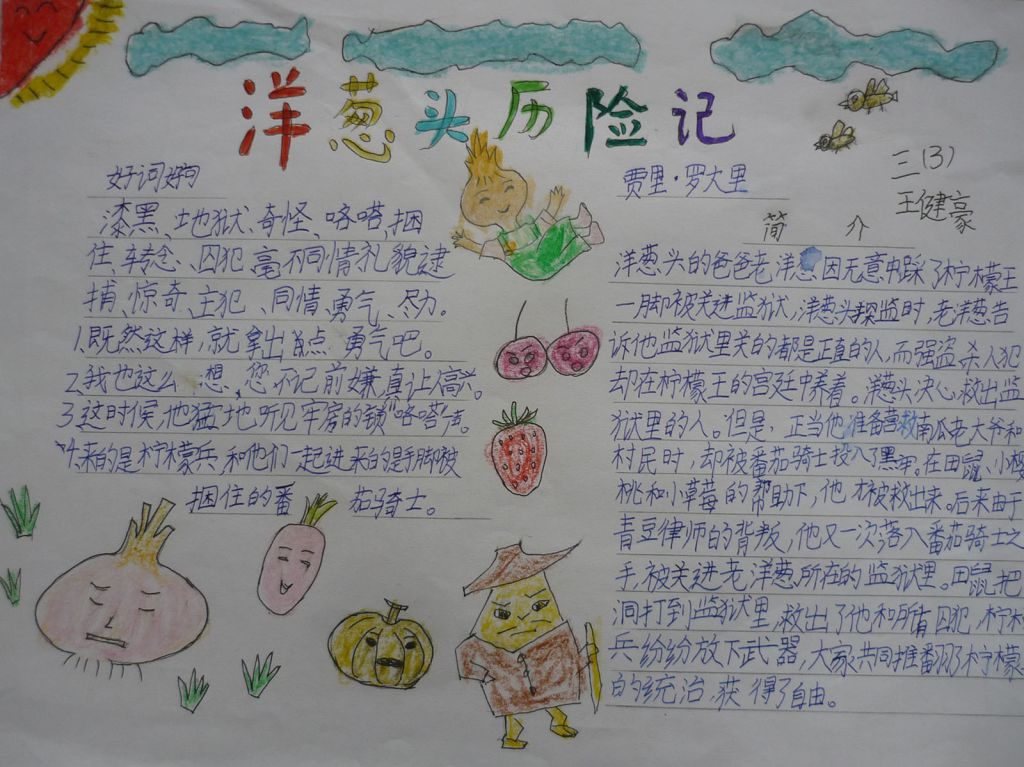 洋葱头历险记
三(3)
王健豪
好词好句
漆黑、地狱、奇怪、咯嗒、捆
住、转念、囚犯、毫不同情礼貌逮
捕、惊奇、主犯、同情、勇气、尽力。
1.既然这样,就拿出点勇气吧。
2.我也这么想,您不记前嫌,真让人高兴。
3.这时候,他猛地听见牢房的锁“咯嗒”声。
4.来的是柠檬兵,和他们一起进来的是手脚被
捆住的番茄骑士。
贾里·罗大里
简介
洋葱头的爸爸老洋葱因无意中踩了柠檬王
一脚被关进监狱,洋葱头探监时,老洋葱告
诉他监狱里关的都是正直的人,而强盗杀人犯
却在柠檬王的宫廷中养着。洋葱头决心救出监
狱里的人。但是,正当他准备营救南瓜老大爷和
村民时,却被番茄骑士投入了黑牢。在田鼠、小樱
桃和小草莓的帮助下,他才被救出来。后来由于
青豆律师的背叛,他又一次落入番茄骑士之
手,被关进老洋葱所在的监狱里。田鼠把
洞打到监狱里,救出了他和所有囚犯,柠檬
兵纷纷放下武器,大家共同推翻了柠檬
的统治,获得了自由。